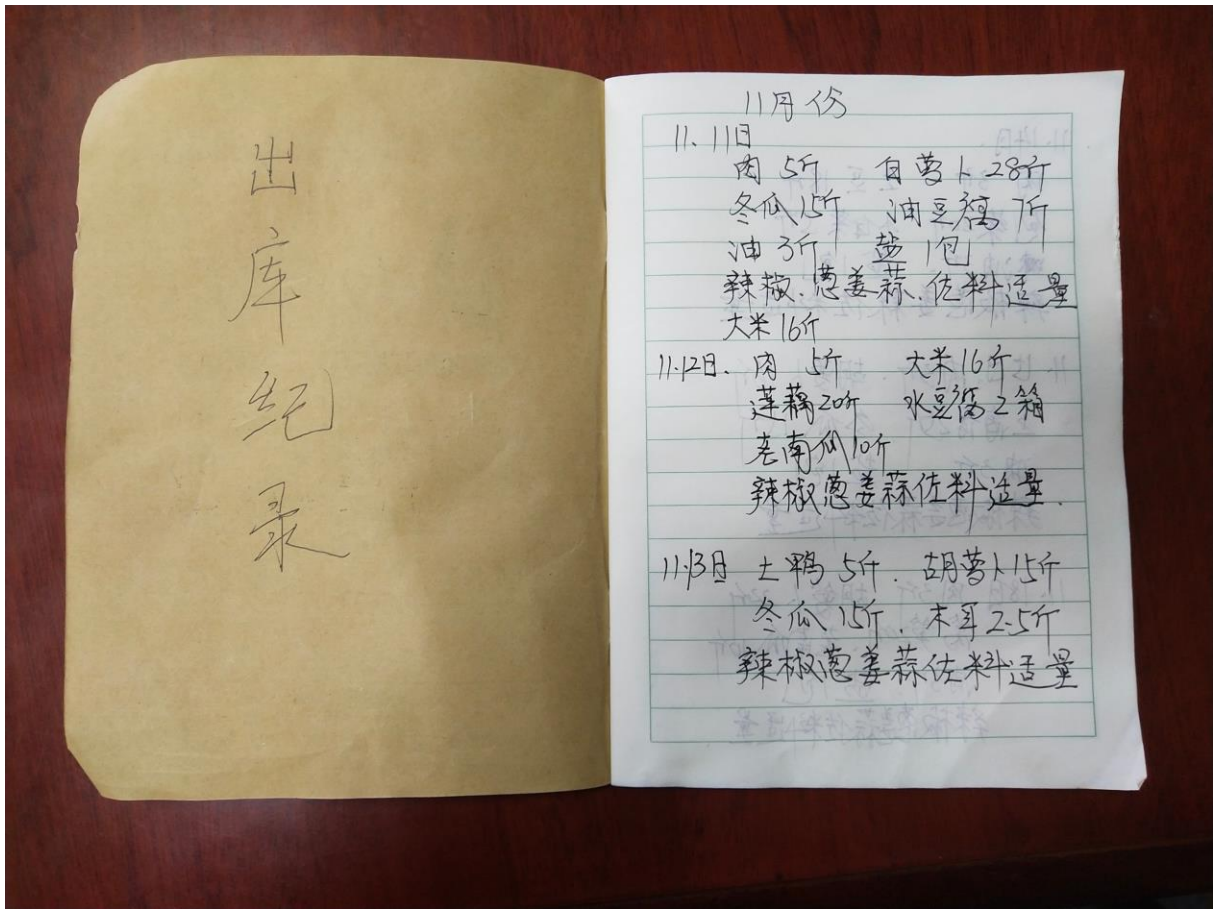 出库纪录
11月份
11.11日
肉 5斤 白萝卜28斤
冬瓜15斤 油豆腐 7斤
油 3斤 盐 1包
辣椒、葱姜蒜、佐料适量
大米16斤
11.12日. 肉 5斤 大米16斤
莲藕20斤 水豆腐2箱
老南瓜10斤
辣椒葱姜蒜佐料适量.
11.13日 土鸭 5斤. 胡萝卜15斤
冬瓜15斤. 木耳2.5斤
辣椒葱姜蒜佐料适量